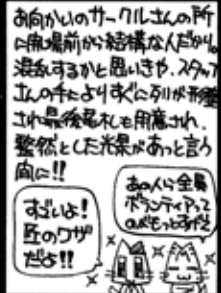 お向かいのサークルさんの所
に開場前から結構な人だかり。
混乱するかと思いきや、スタッフ
さんの手によりすぐに列が形整
され最後尾札も用意され、
整然とした光景があっと言う
間に!!
すごいよ!
匠のワザ
だよ!!
あの人ら全員
ボランティアって